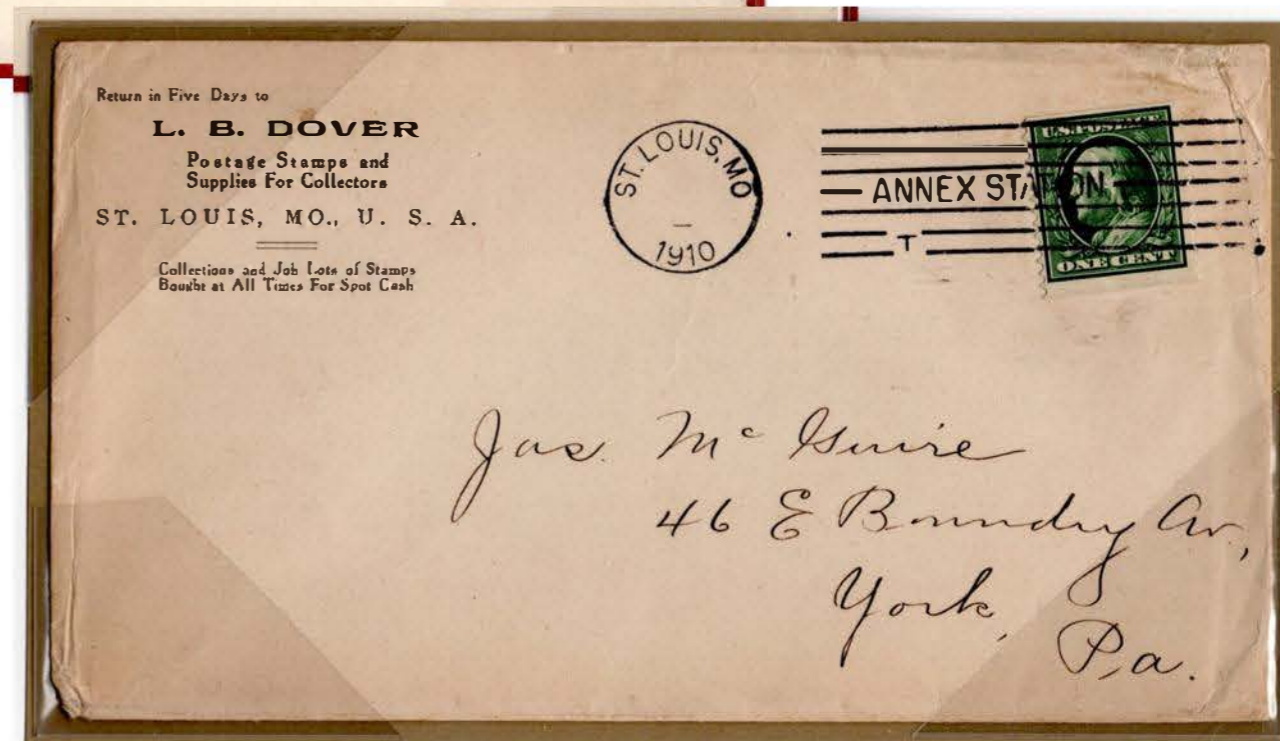 Return in Five Days to
L. B. DOVER
Postage Stamps and
Supplies For Collectors
ST. LOUIS, MO., U. S. A.
Collections and Job Lots of Stamps
Bought at All Times For Spot Cash
ST. LOUIS, MO
1910
ANNEX STATION
T
U.S. POSTAGE
ONE CENT
Jas. Mc Guire
46 E Boundry Av.,
York,
Pa.